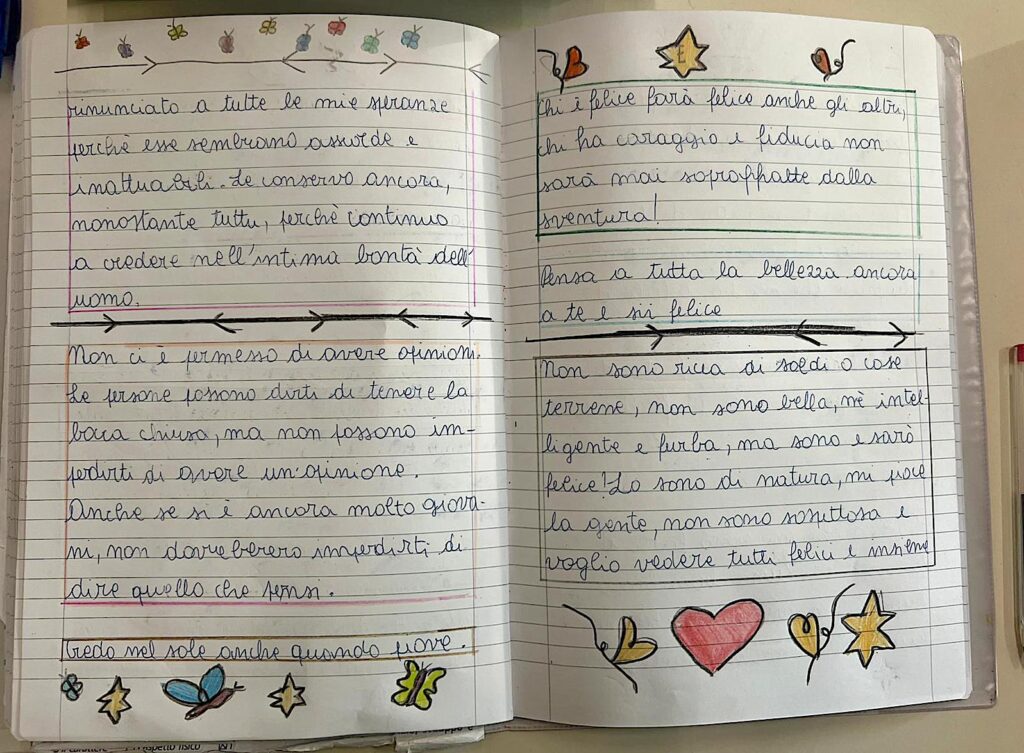 rinunciato a tutte le mie speranze
perchè esse sembrano assurde e
inattuabili. Le conservo ancora,
nonostante tutto, perchè continuo
a credere nell'intima bontà dell'
uomo.
Non ci è permesso di avere opinioni.
Le persone possono dirti di tenere la
bocca chiusa, ma non possono im-
pedirti di avere un'opinione.
Anche se si è ancora molto giova-
ni, non dovrebbero impedirti di
dire quello che pensi.
Credo nel sole anche quando piove.
Chi è felice farà felice anche gli altri,
chi ha coraggio e fiducia non
sarà mai sopraffatte dalla
sventura!
Pensa a tutta la bellezza ancora
a te e sii felice
Non sono ricca di soldi o cose
terrene, non sono bella, nè intel-
ligente e furba, ma sono e sarò
felice! Lo sono di natura, mi piace
la gente, non sono sospettosa e
voglio vedere tutti felici e insieme